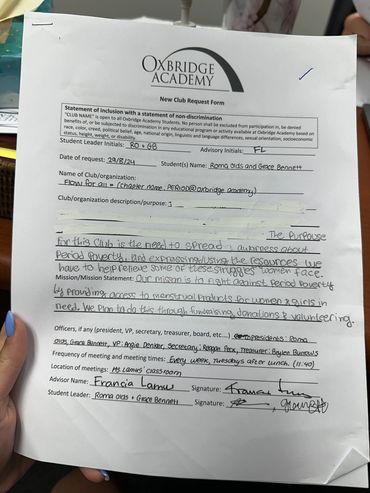 OXBRIDGE
ACADEMY
New Club Request Form
Statement of inclusion with a statement of non-discrimination
"CLUB NAME" is open to all Oxbridge Academy Students. No person shall be excluded from participation in, be denied
benefits of, or be subjected to discrimination in any educational program or activity available at Oxbridge Academy based on
race, color, creed, political belief, age, national origin, linguistic and language differences, sexual orientation, socioeconomic
status, height, weight, or disability.
Student Leader Initials: RO + GB Advisory Initials: FL
Date of request: 29/8/24 Student(s) Name: Roma Olds and Grace Bennett
Name of Club/organization:
Flow for all = (chapter name. PERIOD@oxbridge academy)
Club/organization description/purpose:
The Purpouse
for this Club is the need to spread awarness about
Period Poverty, and expressing/using the resources we
have to help relieve some of these struggles women face.
Mission/Mission Statement: Our mission is to fight against Period Poverty
by providing access to menstrual products for women & girls in
need. We Plan to do this through fundraising, donations & volunteering.
Officers, if any (president, VP, secretary, treasurer, board, etc...) presidents: Roma
Olds, Grace Bennett, VP: Angie Denker, Secretary: Reagan Peck, Treasurer: Baylen Burrows
Frequency of meeting and meeting times: Every week, Tuesdays after lunch. (11:40)
Location of meetings: Ms Lamus' classroom
Advisor Name: Francia Lamus Signature:
Student Leader: Roma Olds + Grace Bennett Signature: